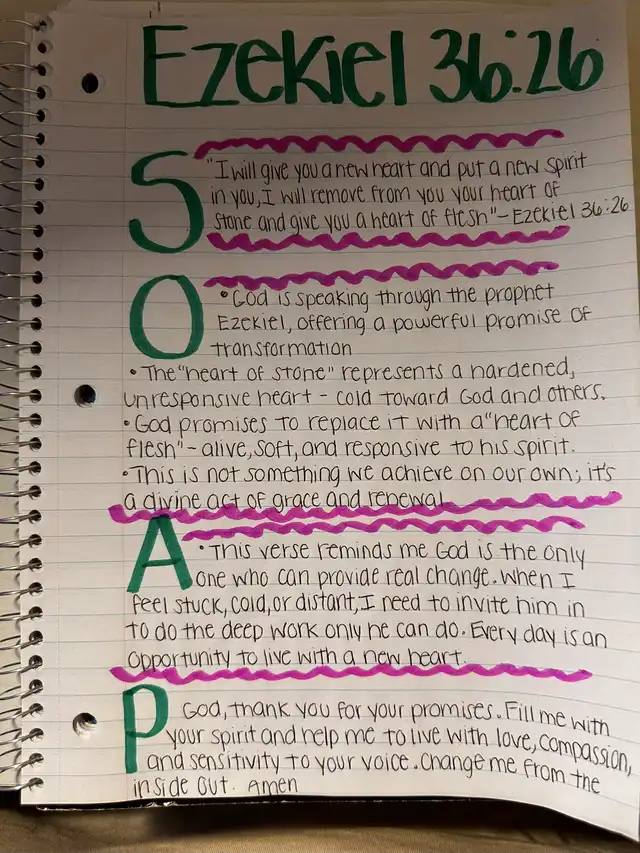 Ezekiel 36:26
S
"I will give you a new heart and put a new spirit
in you, I will remove from you your heart of
stone and give you a heart of flesh" - Ezekiel 36:26
O
• God is speaking through the prophet
Ezekiel, offering a powerful promise of
transformation
• The "heart of stone" represents a hardened,
unresponsive heart - cold toward God and others.
• God promises to replace it with a "heart of
flesh" - alive, soft, and responsive to his spirit.
• This is not something we achieve on our own; it's
a divine act of grace and renewal
A
• This verse reminds me God is the only
one who can provide real change. When I
feel stuck, cold, or distant, I need to invite him in
to do the deep work only he can do. Every day is an
opportunity to live with a new heart.
P
God, thank you for your promises. Fill me with
your spirit and help me to live with love, compassion,
and sensitivity to your voice. Change me from the
inside out. Amen